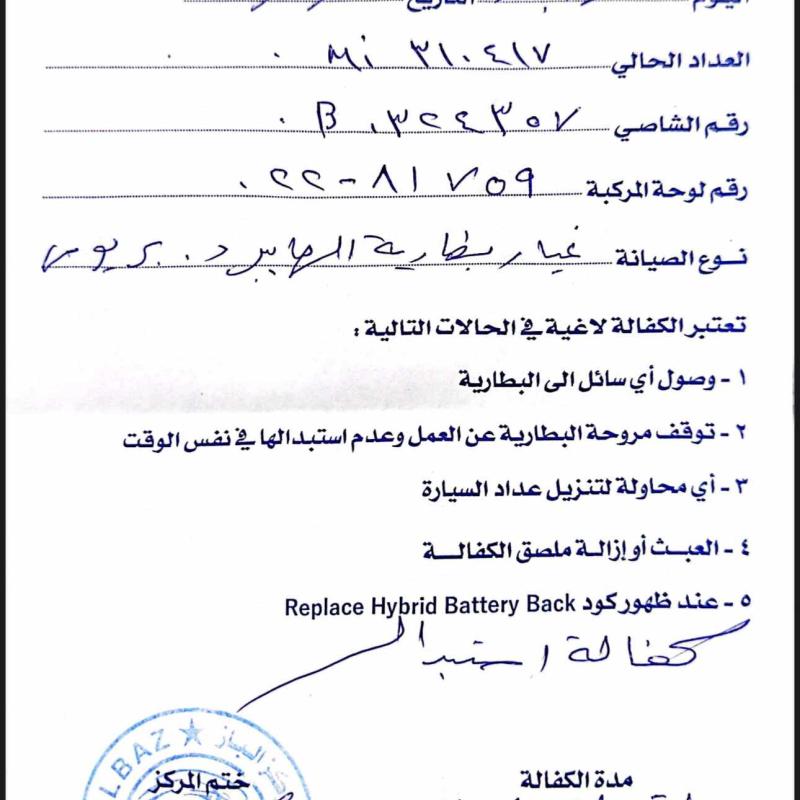 اليوم التاريخ
العداد الحالي ٣١٠٤١٧ Mi
رقم الشاصي B ٠٣٢٤٣٥٧
رقم لوحة المركبة ٨١٧٥٩-٢٢
نوع الصيانة غيار بطارية الهايبرد
تعتبر الكفالة لاغية في الحالات التالية :
١ - وصول أي سائل الى البطارية
٢ - توقف مروحة البطارية عن العمل وعدم استبدالها في نفس الوقت
٣ - أي محاولة لتنزيل عداد السيارة
٤ - العبث أو إزالة ملصق الكفالة
٥ - عند ظهور كود Replace Hybrid Battery Back
كفالة استبدال
LBAZ مركز الباز
مدة الكفالة ختم المركز